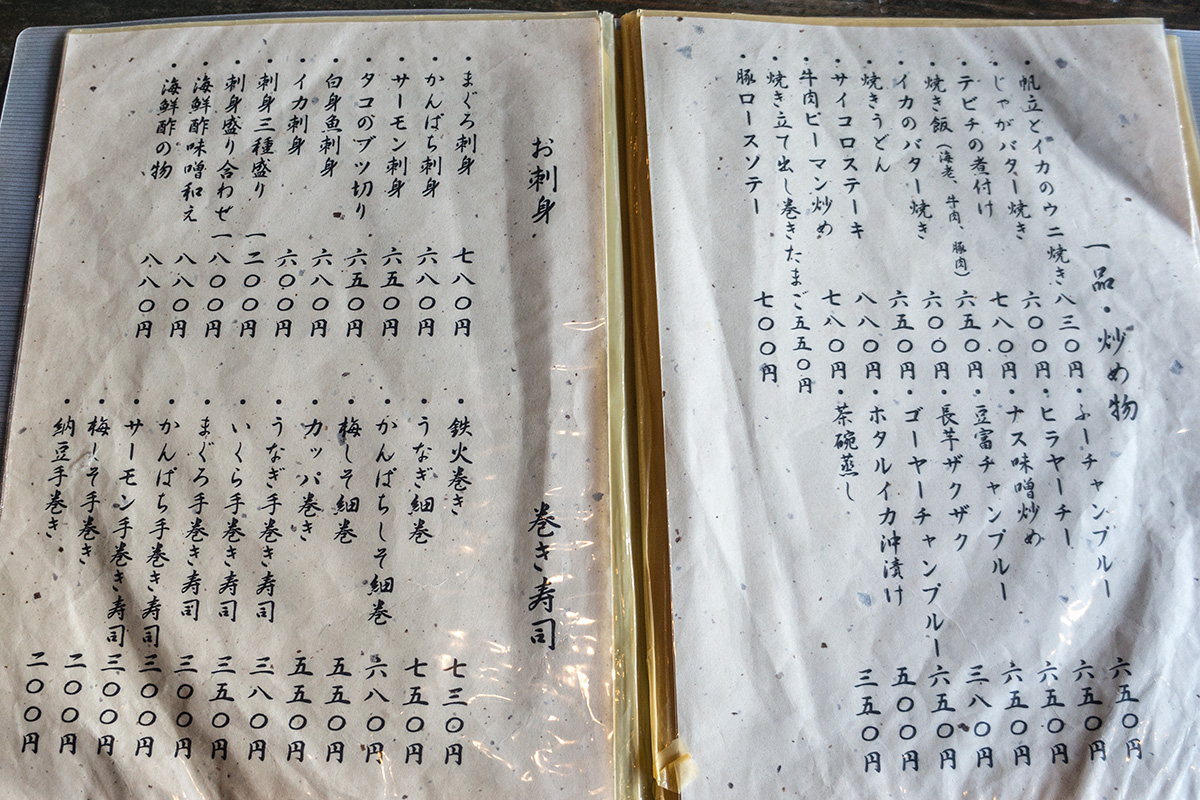 一品・炒め物
・帆立とイカのウニ焼き 八三〇円
・じゃがバター焼き 六〇〇円
・テビチの煮付け 七八〇円
・焼き飯（海老、牛肉、豚肉） 六五〇円
・イカのバター焼き 六〇〇円
・焼きうどん 六五〇円
・サイコロステーキ 八八〇円
・牛肉ピーマン炒め 七八〇円
・焼き立て出し巻きたまご 五五〇円
・豚ロースソテー 七〇〇円
・ふーチャンプルー 六五〇円
・ヒラヤーチー 六五〇円
・ナス味噌炒め 六五〇円
・豆富チャンプルー 六五〇円
・長芋ザクザク 三八〇円
・ゴーヤーチャンプルー 六五〇円
・ホタルイカ沖漬け 五〇〇円
・茶碗蒸し 三五〇円
お刺身
・まぐろ刺身 七八〇円
・かんぱち刺身 六八〇円
・サーモン刺身 六五〇円
・タコのブツ切り 六五〇円
・白身魚刺身 六八〇円
・イカ刺身 六〇〇円
・刺身三種盛り 一二〇〇円
・刺身盛り合わせ 一八〇〇円
・海鮮酢味噌和え 八八〇円
・海鮮酢の物 八八〇円
巻き寿司
・鉄火巻き 七三〇円
・うなぎ細巻 七五〇円
・かんぱちしそ細巻 六八〇円
・梅しそ細巻 五五〇円
・カッパ巻き 五五〇円
・うなぎ手巻き寿司 三八〇円
・いくら手巻き寿司 三五〇円
・まぐろ手巻き寿司 三〇〇円
・かんぱち手巻き寿司 三〇〇円
・サーモン手巻き寿司 三〇〇円
・梅しそ手巻き 二〇〇円
・納豆手巻き 二〇〇円